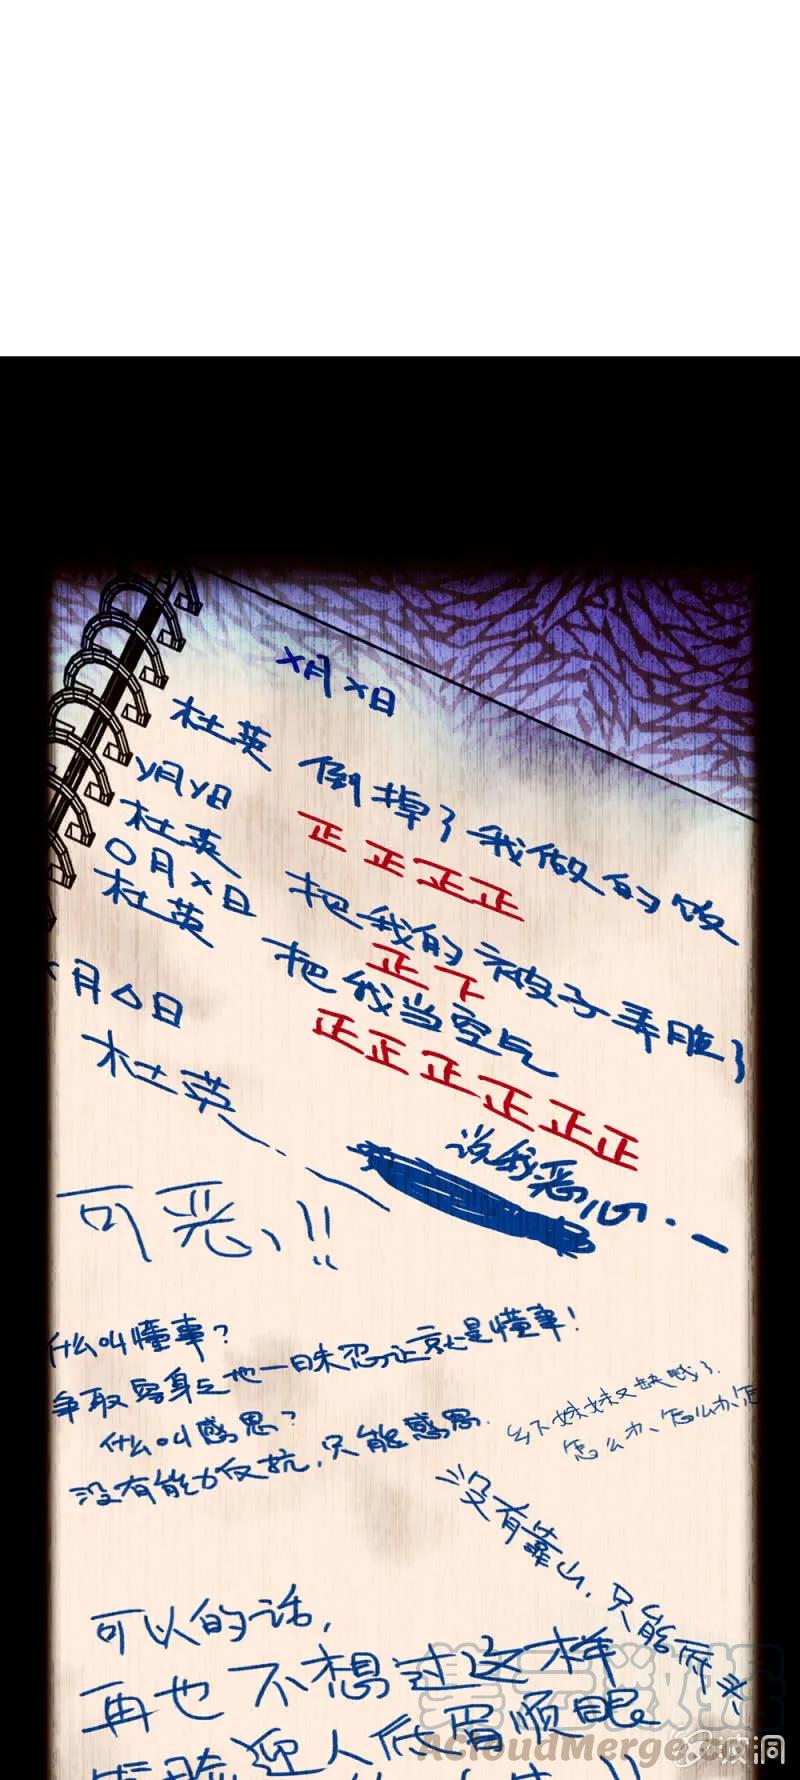 X月X日
杜英 倒掉了我做的饭
正正正正
Y月Y日
杜英 把我的被子弄脏了
正下
O月X日
杜英 把我当空气
正正正正正正
月△日
杜英
说我恶心
可恶!!
什么叫懂事?
争取
忍让就是懂事!
什么叫感恩?
没有能力反抗,只能感恩.
乡下妹妹又缺钱了.
怎么办、怎么办、怎
没有靠山,只能
可以的话,
再也不想过这样
迎人低眉顺眼
AcloudMerge.com
漫洞